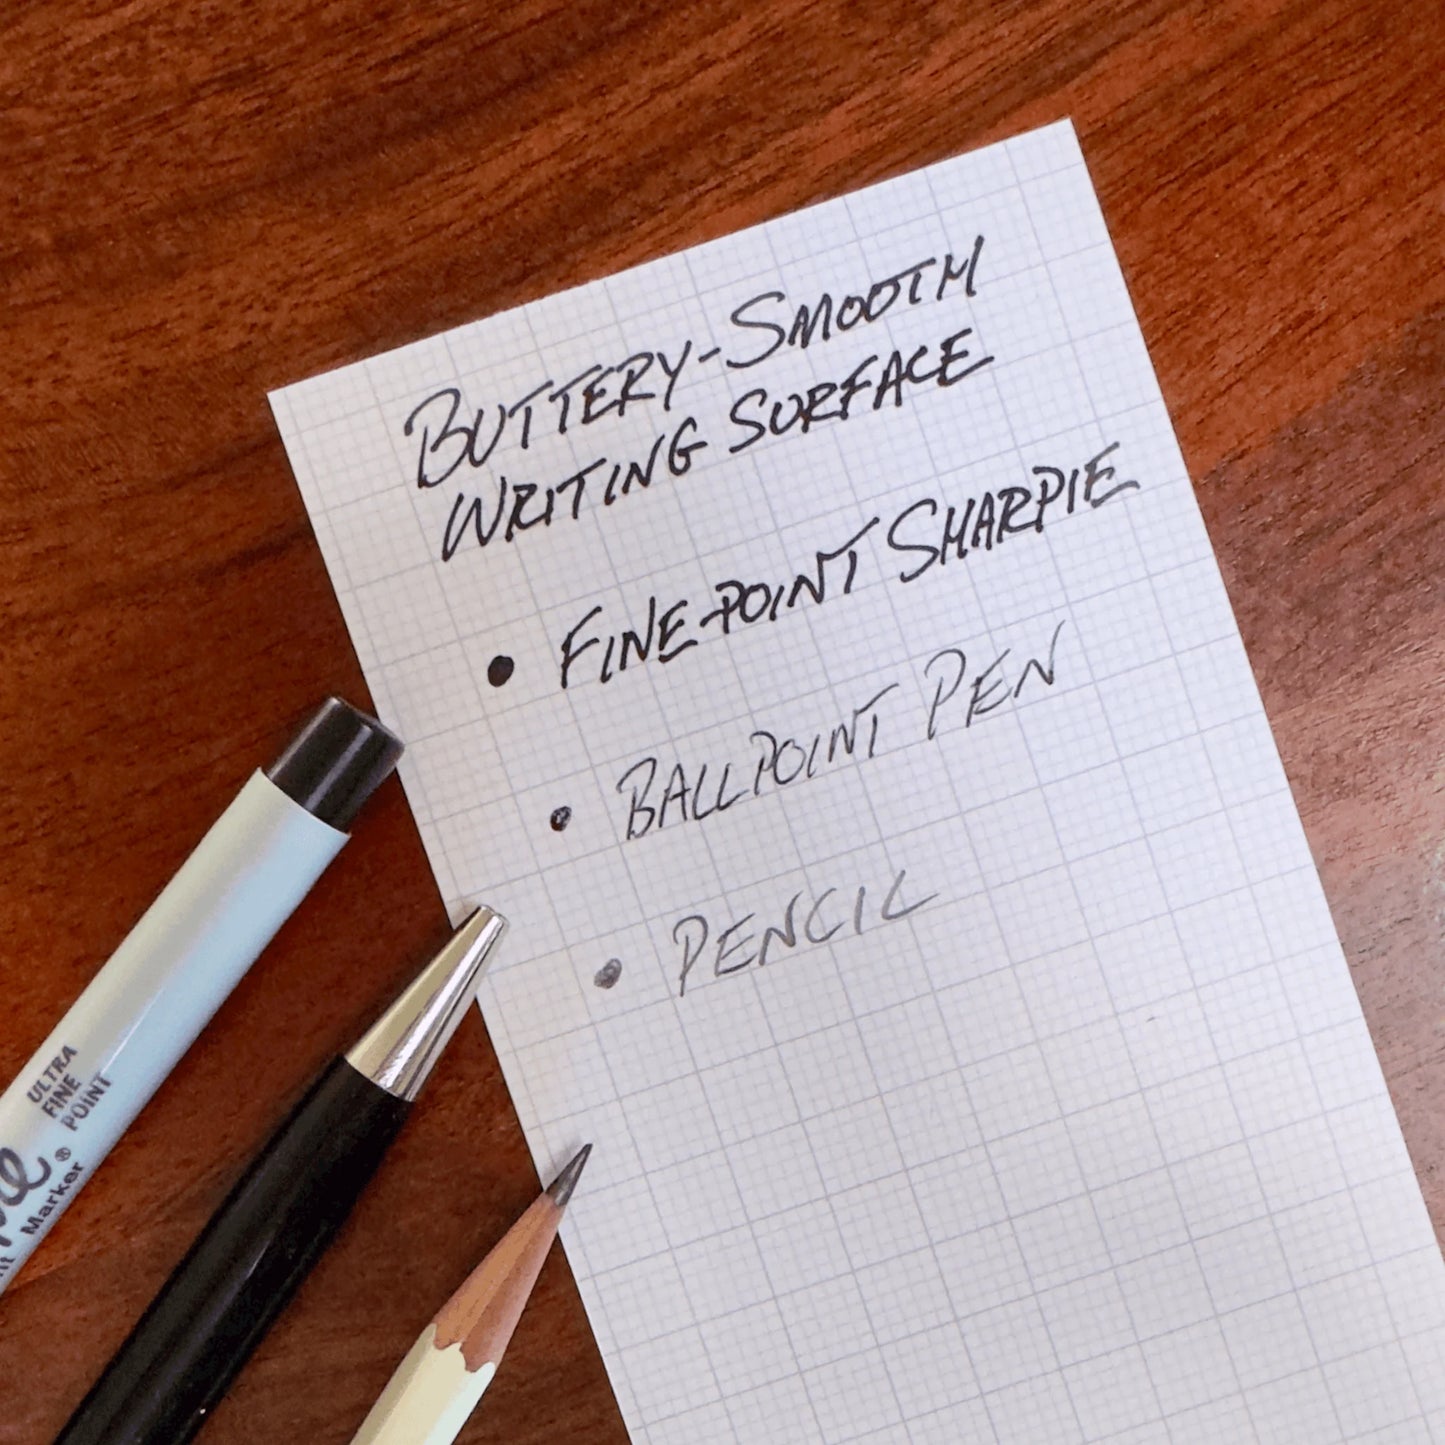 BUTTERY-SMOOTH
WRITING SURFACE
• FINE-POINT SHARPIE
• BALLPOINT PEN
• PENCIL
ULTRA
FINE
POINT
Marker
®